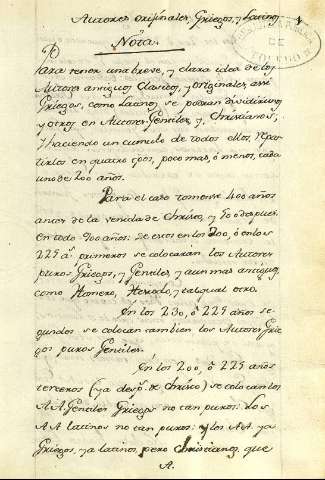 Autores originales, Griegos, y Latinos
Nota.
Para tener una breve, y clara idea de los
Autores antiguos Clasicos, y originales, assi
Griegos, como Latinos, se podran dividir unos
y otros en Autores Gentiles, y Christianos,
y haciendo un cumulo de todos ellos, repar-
tirlos en quatro epos, poco mas, ó menos, cada
uno de 200 años.
Para el caso tomense 400 años
antes de la venida de Christo, y 500 despues.
en todo 900 años: De estos en los 200, ó en los
225 a.s primeros se colocaran los Autores
puros Griegos, y Gentiles, y aun mas antiguos
como Homero, Hesiodo, y tal qual otro.
En los 230, ó 225 años se-
gundos se colocan tambien los Autores Grie-
gos puros Gentiles.
En los 200, ó 225 años
terceros (ya desp.s de Christo) se colocan los
AA Gentiles Griegos no tan puros: Los
AA latinos no tan puros: y los AA. ya
Griegos, ya latinos, pero Christianos, que
A.